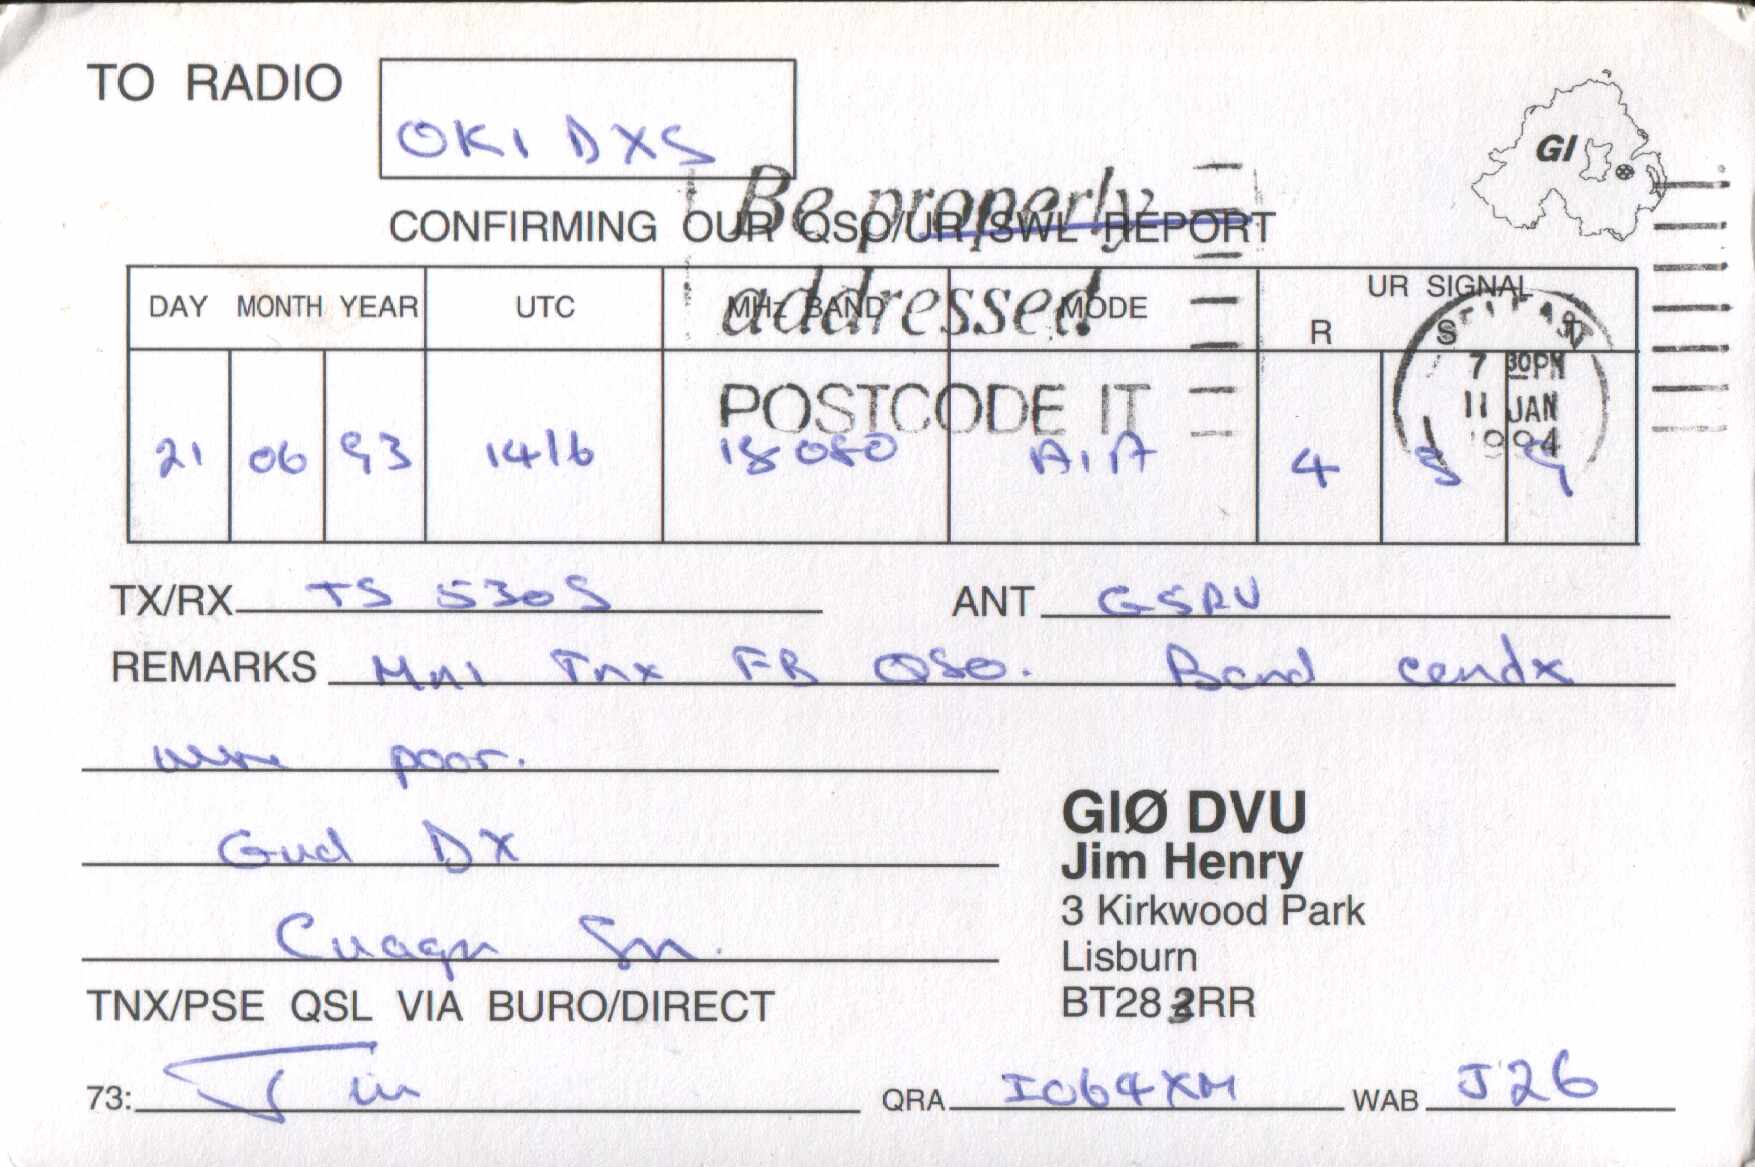 TO RADIO
OK1 DXS
GI
Be properly
CONFIRMING OUR QSO/UR SWL REPORT
addressed
DAY MONTH YEAR UTC MHz BAND MODE UR SIGNAL
R S T
POSTCODE IT
7 30PM
11 JAN
1994
21 06 93 1416 18 080 A1A 4 3 9
TX/RX TS 530S ANT G5RV
REMARKS Mni Tnx FB QSO. Band condx
were poor.
Gud DX
Cuagn Sn.
GIØ DVU
Jim Henry
3 Kirkwood Park
Lisburn
BT28 3RR
TNX/PSE QSL VIA BURO/DIRECT
73: Jim QRA IO64XM WAB J26